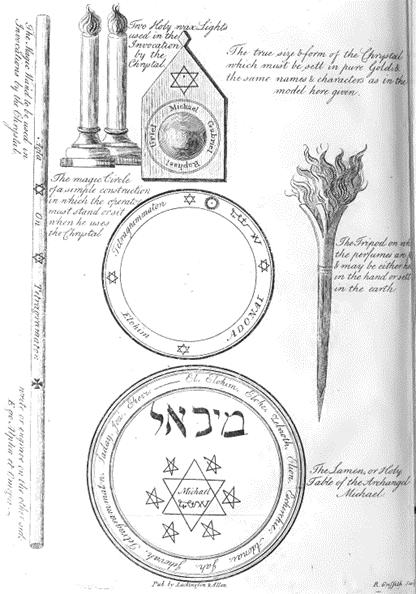 The Magic Wand to be used in
Invocations by the Chrystal
Agla
On
Tetragrammaton
write or engrave on the other side
Ego Alpha et Omega
Two Holy wax Lights
used in the
Invocation
by the
Chrystal
The true size & form of the Chrystal
which must be sett in pure Gold &
the same names & characters as in the
model here given.
Michael
Gabriel
Raphael
Uriel
The magic Circle
of a simple construction
in which the operator
must stand or sit
when he uses
the Chrystal
Tetragrammaton
ADONAI
Elohim
The Tripod on wh
the perfumes are
& may be either he
in the hand or sett
in the earth
El, Elohim, Elohe, Zebaoth, Elion, Escerchie, Adonai, Jah, Tetragrammaton, Saday
מיכאל
Michael
The Lamen, or Holy
Table of the Archangel
Michael
Pub. by Lackington & Allen
R. Griffith